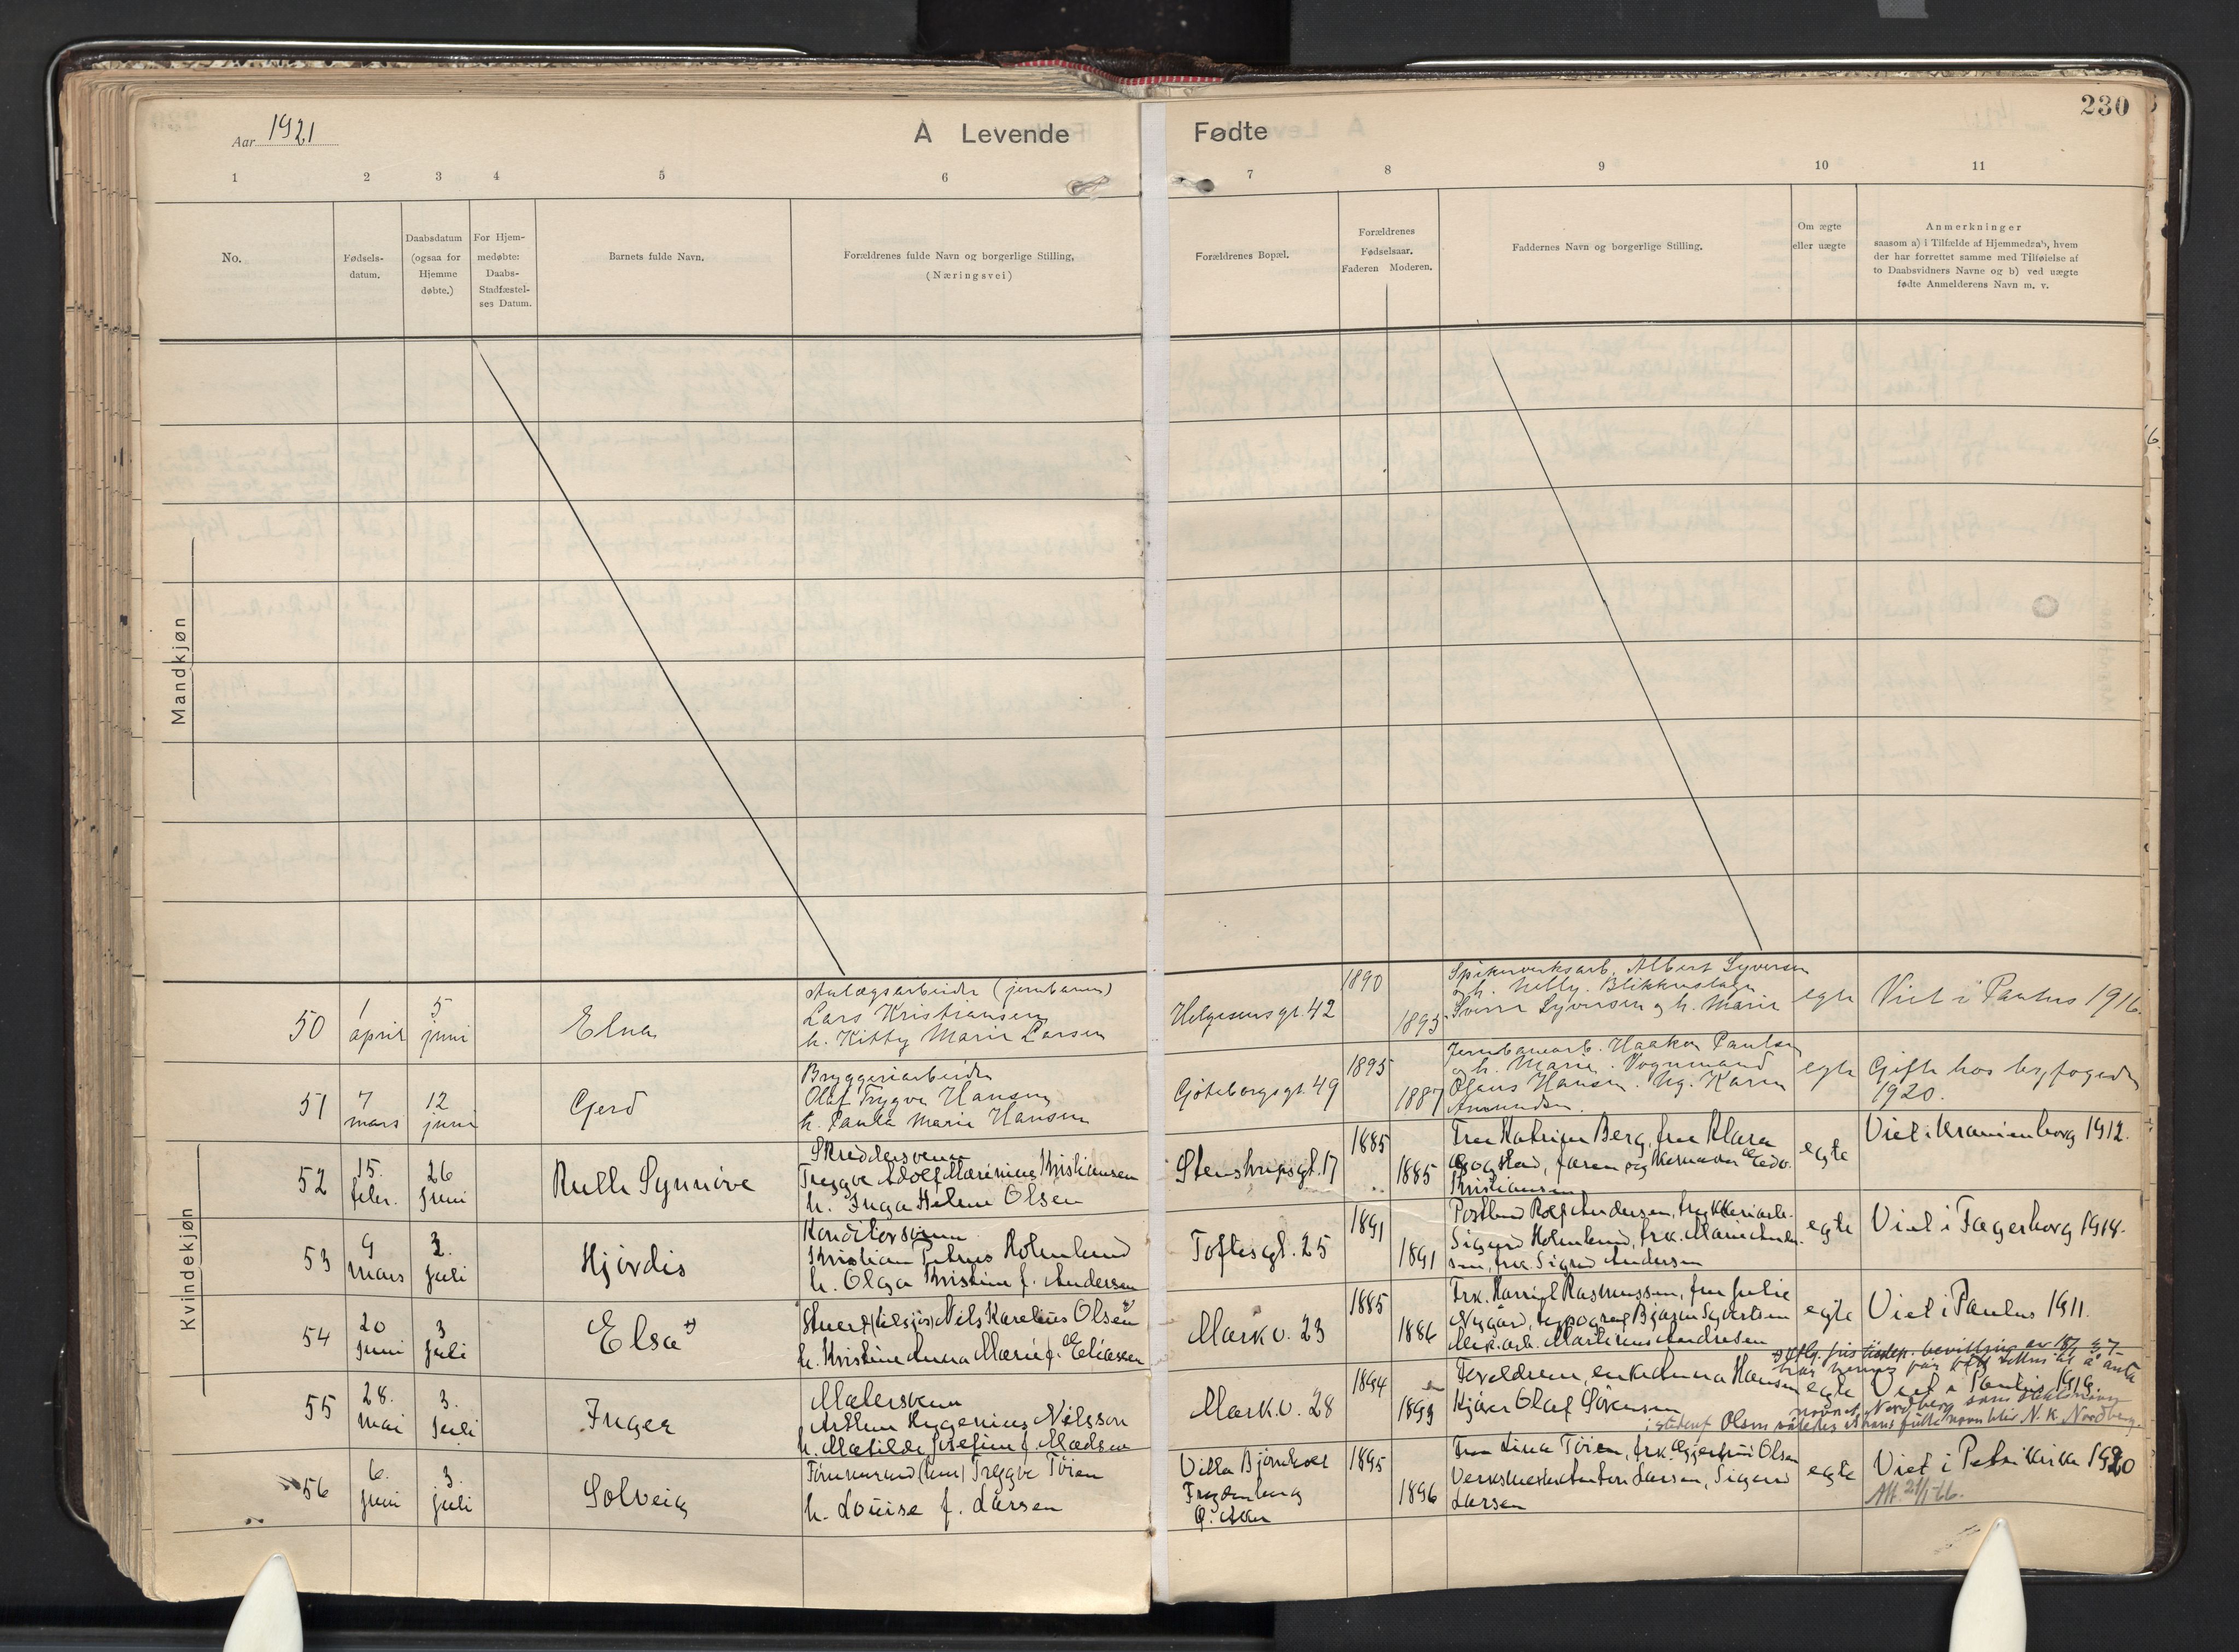 Aar 1921
A Levende Fødte
230
1 2 3 4 5 6 7 8 9 10 11
No.
Fødsels-
datum.
Daabsdatum
(ogsaa for
Hjemme
døbte.)
For Hjem-
medøbte:
Daabs-
Stadfæstel-
ses Datum.
Barnets fulde Navn.
Forældrenes fulde Navn og borgerlige Stilling.
(Næringsvei)
Forældrenes Bopæl.
Forældrenes
Fødselsaar.
Faderen Moderen.
Faddernes Navn og borgerlige Stilling.
Om ægte
eller uægte
Anmerkninger
saasom a) i Tilfælde af Hjemmedaab, hvem
der har forrettet samme med Tilføielse af
to Daabsvidners Navne og b) ved uægte
fødte Anmelderens Navn m. v.
Mandkjøn
Kvindekjøn
50
1
april
5
juni
Elna
Anlægsarbeider (jernbanen)
Lars Kristiansen
h. Kitty Marie Larsen
Helgesensgt. 42
1890
1895
Spikerverksarb. Albert Syversen
og h. Nelly. Blikkenslager
Sverre Syversen og h. Marie
egte
Viet i Paulus 1916.
51
7
mars
12
juni
Gerd
Bryggeriarbeider
Olaf Trygve Hansen
h. Paula Marie Hansen
Gøteborgsgt. 49
1895
1887
Jernbanearb. Haakon Paulsen
og h. Marie. Vognmand
Olaus Hansen. Ug. Karen
Amundsen.
egte
Gifte hos byfogden
1920.
52
15.
febr.
26
juni
Rulle Synnöve
Skreddersvenn
Trygve Adolf Marinius Kristiansen
h. Inga Helene Olsen
Stenstrupsgt. 17
1885
1885
Fru Katrine Berg, fru Klara
Bogstad, faren og Edv.
Kristiansen
egte
Viet i Uranienborg 1912.
53
9
mars
3.
juli
Hjördis
Konditorsvenn
Kristian Petrus Holmlund
h. Olga Kristine f. Andersen
Toftesgt. 25
1891
1891
Postbud Rolf Andersen, trykkeriarb.
Sigurd Holmlund, frk. Marie Ander-
sen, frk. Sigrid Andersen
egte
Viet i Fagerborg 1914.
54
20
juni
3
juli
Elsa x)
Stuert (tilsjøs) Nils Karelius Olsen x)
h. Kristine Anna Marie f. Eliassen
Markv. 23
1885
1886
Frk. Harriet Rasmussen, fru Julie
Nygård, typograf Bjarne Syvertsen
Mek. arb. Martinius Andresen
egte
Viet i Paulus 1911.
x) Iflg. justisdep. bevilling av
har nevnte par fått tillatelse til å anta
navnet Nordberg som slektsnavn
istedenf. Olsen således at hans fulle navn blir N. K. Nordberg.
55
28.
mai
3.
juli
Inger
Malersvenn
Arthur Eugenius Nilsson
h. Matilde Josefine f. Madsen
Markv. 28
1894
1893
Foreldrene, enke Anna Hansen
Kjører Olaf Sörensen
egte
Viet i Paulus 1916.
56
6.
juni
3.
juli
Solveig
Tömmermand Trygve Töien
h. Louise f. Larsen
Villa Björnhoel
Frydenberg
Ö. Aker
1895
1896
Fru Lina Töien, frk. Olsen
Verksmester Anton Larsen, Sigurd
Larsen
egte
Viet i Petrikirken 1920
Att. 21/1-66.